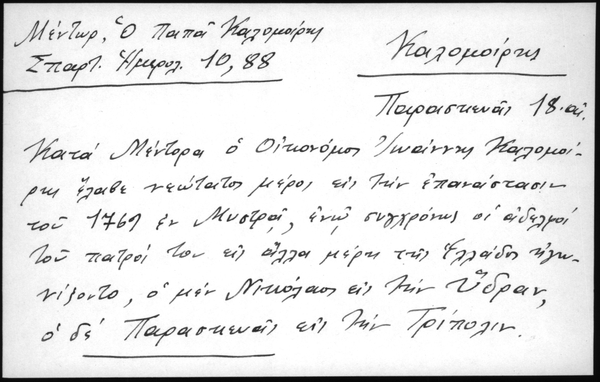 Μέντωρ, Ὁ Παπᾶ Καλομοίρης
Σπαρτ. Ἡμερολ. 10, 88
Καλομοίρης
Παρασκευᾶς 18. αἰ.
Κατά Μέντορα ὁ Οἰκονόμος Ἰωάννης Καλομοί-
ρης ἔλαβε νεώτατος μέρος εἰς τήν ἐπανάστασιν
τοῦ 1769 ἐν Μυστρᾷ, ἐνῷ συγχρόνως οἱ ἀδελφοί
τοῦ πατρός του εἰς ἄλλα μέρη τῆς Ἑλλάδος ἠγω-
νίζοντο, ὁ μέν Νικόλαος εἰς τήν Ὕδραν,
ὁ δέ Παρασκευᾶς εἰς τήν Τρίπολιν.